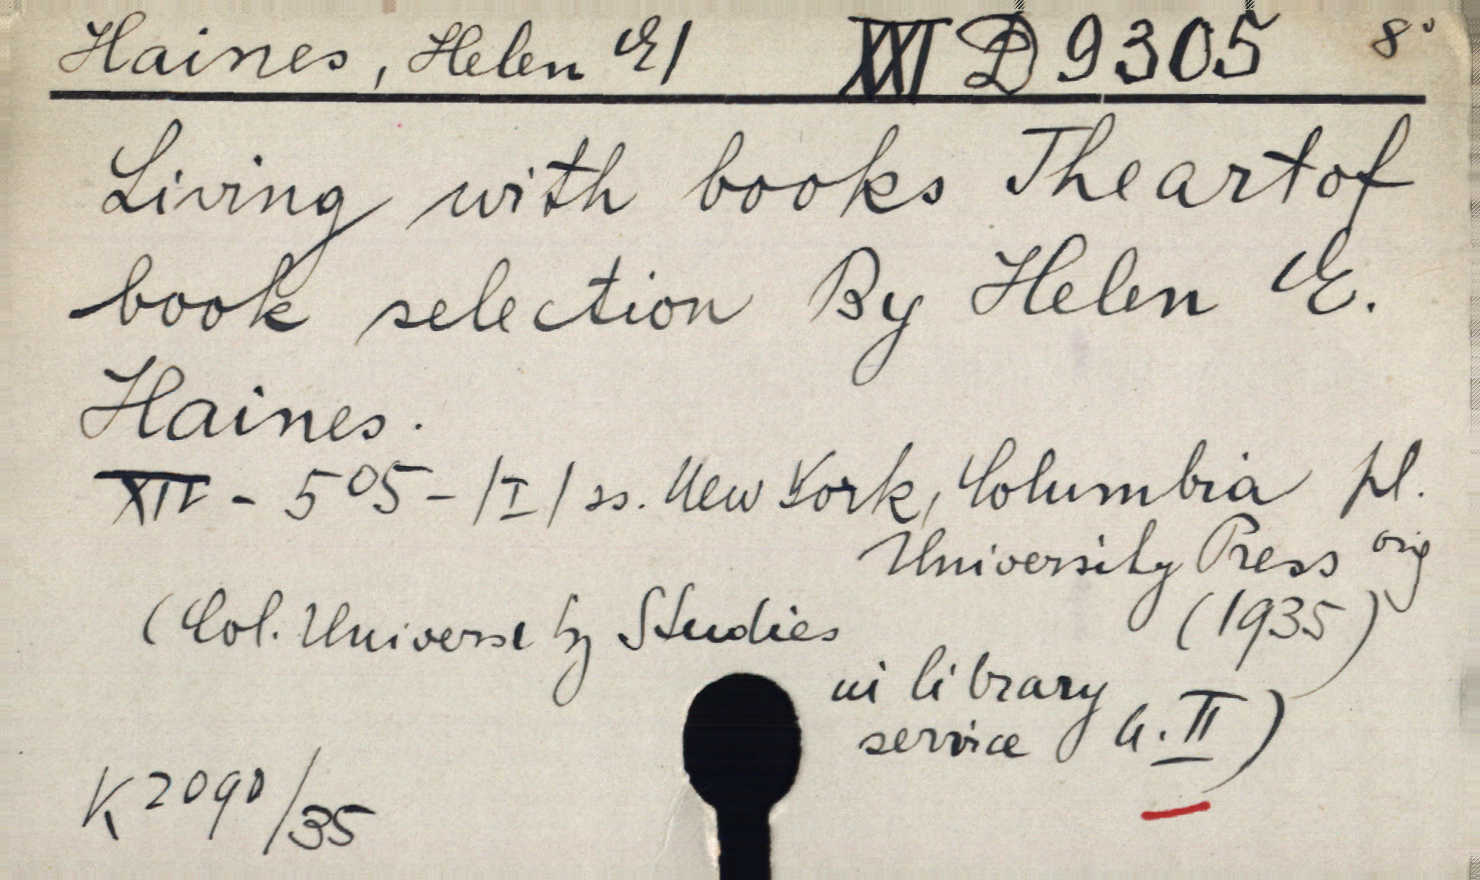 Haines, Helen E/ XXI D 9305 8°
Living with books The art of
book selection By Helen E.
Haines.
XIV - 505 - /I/ ss. New York, Columbia pl.
University Press orig
(1935)
(Col. University Studies
in library
service 4. II)
K 2090/35